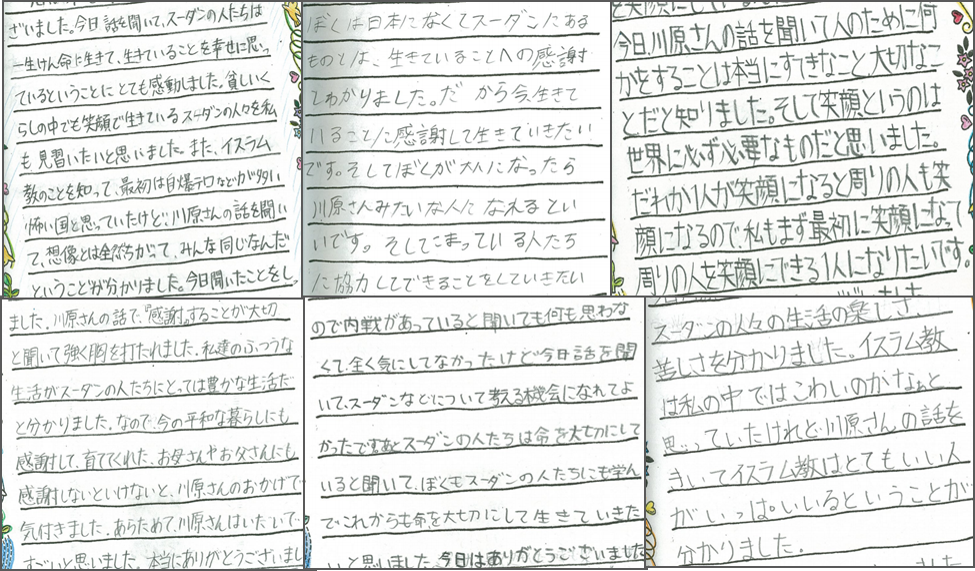 ざいました。今日話を聞いて、スーダンの人たちは
一生けん命に生きて、生きていることを幸せに思っ
ているということにとても感動しました。貧しいく
らしの中でも笑顔で生きているスーダンの人々を私
も見習いたいと思いました。また、イスラム
教のことを知って、最初は自爆テロなどが多い
怖い国と思っていたけど、川原さんの話を聞い
て、想像とは全然ちがって、みんな同じなんだ
ということが分かりました。今日聞いたことをし
ぼくは日本になくてスーダンにある
ものとは、生きていることへの感謝
とわかりました。だから今、生きて
いることに感謝して生きていきたい
です。そしてぼくが大人になったら
川原さんみたいな人になれるとい
いです。そしてこまっている人たち
に協力してできることをしていきたい
今日、川原さんの話を聞いて人のために何
かをすることは本当にすてきなこと、大切なこ
とだと知りました。そして笑顔というのは
世界に必ず必要なものだと思いました。
だれか1人が笑顔になると周りの人も笑
顔になるので、私もまず最初に笑顔になって
周りの人を笑顔にできる1人になりたいです。
ました。川原さんの話で、"感謝"することが大切
と聞いて強く胸を打たれました。私達のふつうな
生活がスーダンの人たちにとっては豊かな生活だ
と分かりました。なので、今の平和な暮らしにも
感謝して、育ててくれた、お母さんやお父さんにも
感謝しないといけないと、川原さんのおかげで
気付きました。あらためて、川原さんはいだいで
すごいと思いました。本当にありがとうございまし
ので内戦があっていると聞いても何も思わな
くて、全く気にしてなかったけど今日話を聞
いて、スーダンなどについて考える機会になれてよ
かったですあとスーダンの人たちは命を大切にして
いると聞いて、ぼくもスーダンの人たちにも学ん
でこれからも命を大切にして生きていきた
いと思いました。今日はありがとうございました
スーダンの人々の生活の楽しさ、
苦しさを分かりました。イスラム教
は私の中ではこわいのかなぁと
思っていたけれど、川原さんの話を
きいてイスラム教はとてもいい人
がいっぱいいるということが
分かりました。